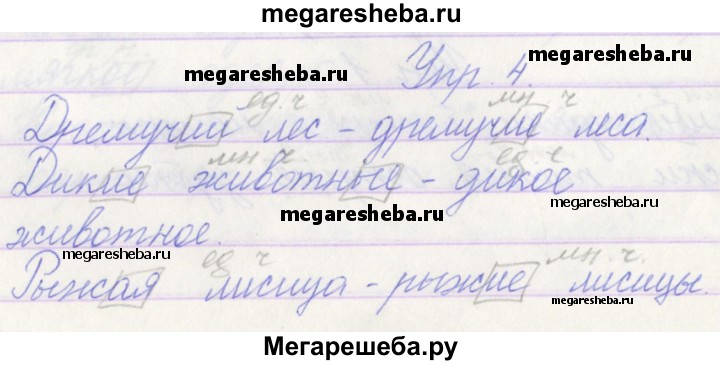 megaresheba.ru
megaresheba.ru megaresheba.ru
Упр. 4.
ед. ч мн. ч
Дремучий лес - дремучие леса.
мн. ч. ед. ч.
Дикие животные - дикое
megaresheba.ru
животное.
megaresheba.ru megaresheba.ru
ед. ч мн. ч.
Рыжая лисица - рыжие лисицы.
megaresheba.ru
Мегарешеба.ру